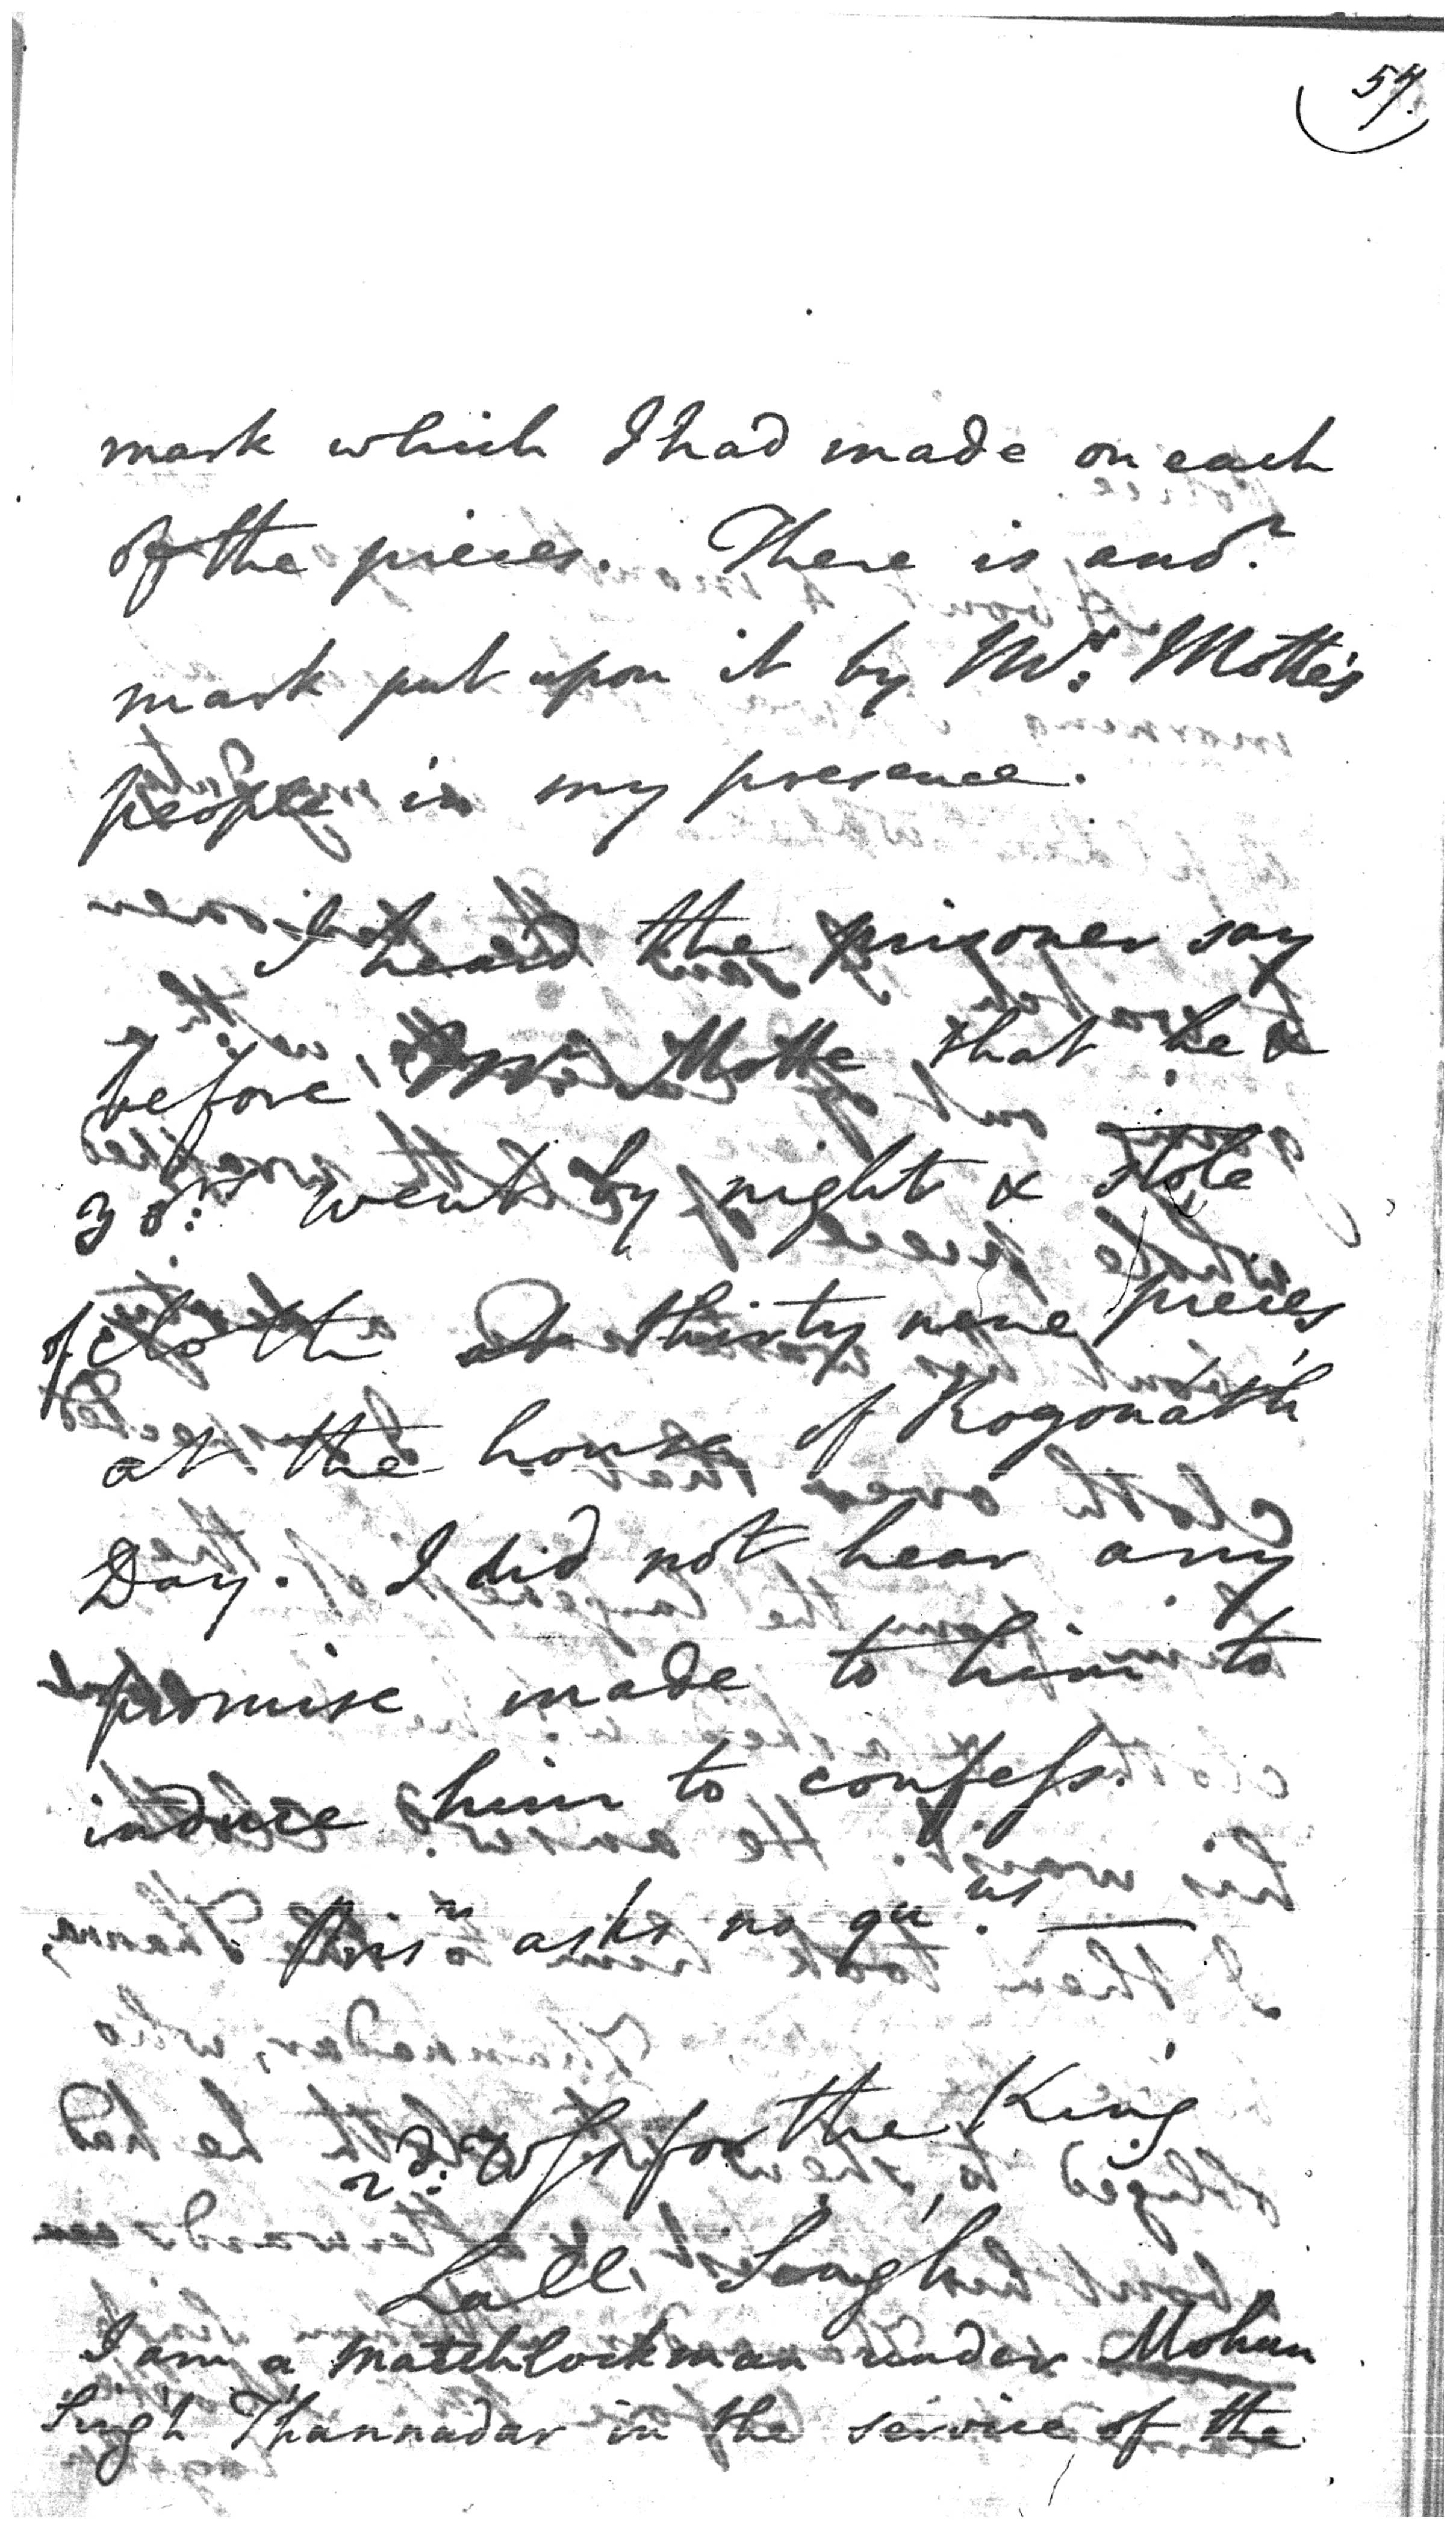 54.
mark which I had made on each
of the pieces. There is ano.r
mark put upon it by Mr: Motte's
people in my presence.
I heard the prisoner say
before Mr. Motte that he &
3 o:rs went by night & stole
of cloth thirty nene pieces
at the house of Rogonath
Day. I did not hear any
promise made to him to
induce him to confess.
Pris.r asks no qu:ns
2d: Wss for the King
Lall Singh
I am a matchlockman under Mohun
Singh Thannadar in the service of the